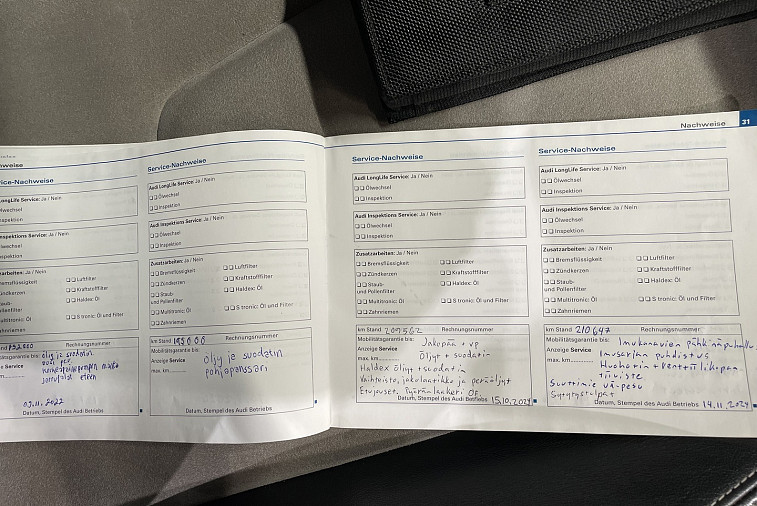 Nachweise 31
Service-Nachweise
LongLife Service: Ja / Nein
Inspektions Service: Ja / Nein
Ja / Nein
Luftfilter
Kraftstofffilter
Haldex: Öl
S tronic: Öl und Filter
Zahnriemen
Rechnungsnummer
öljy ja suodatin
09.11.2022
Datum, Stempel des Audi Betriebs
Service-Nachweise
Audi LongLife Service: Ja / Nein
Ölwechsel
Inspektion
Audi Inspektions Service: Ja / Nein
Ölwechsel
Inspektion
Zusatzarbeiten: Ja / Nein
Bremsflüssigkeit
Luftfilter
Zündkerzen
Kraftstofffilter
Staub-
und Pollenfilter
Haldex: Öl
Multitronic: Öl
S tronic: Öl und Filter
Zahnriemen
km Stand
Rechnungsnummer
Mobilitätsgarantie bis:
Anzeige Service
max. km
öljy je suodatin
pohjapanssari
Datum, Stempel des Audi Betriebs
Service-Nachweise
Audi LongLife Service: Ja / Nein
Ölwechsel
Inspektion
Audi Inspektions Service: Ja / Nein
Ölwechsel
Inspektion
Zusatzarbeiten: Ja / Nein
Bremsflüssigkeit
Luftfilter
Zündkerzen
Kraftstofffilter
Staub-
und Pollenfilter
Haldex: Öl
Multitronic: Öl
S tronic: Öl und Filter
Zahnriemen
km Stand 209562 Rechnungsnummer
Mobilitätsgarantie bis: Jakopää + vp
Anzeige Service Öljyt + suodatin
max. km
Haldex öljyt + suodatin
Vaihteisto, jakolaatikko ja peräöljyt
Etujouset,
Datum, Stempel des Audi Betriebs 15.10.2024
Service-Nachweise
Audi LongLife Service: Ja / Nein
Ölwechsel
Inspektion
Audi Inspektions Service: Ja / Nein
Ölwechsel
Inspektion
Zusatzarbeiten: Ja / Nein
Bremsflüssigkeit
Luftfilter
Zündkerzen
Kraftstofffilter
Staub-
und Pollenfilter
Haldex: Öl
Multitronic: Öl
S tronic: Öl und Filter
Zahnriemen
km Stand 210647 Rechnungsnummer
Mobilitätsgarantie bis: Imukanavien pähkinäpuhallus
Anzeige Service Imusarjan puhdistus
max. km Huohotin + venttiilikopan
tiiviste
Suuttimie vä-pesu
Sytytystulpat
Datum, Stempel des Audi Betriebs 14.11.2024